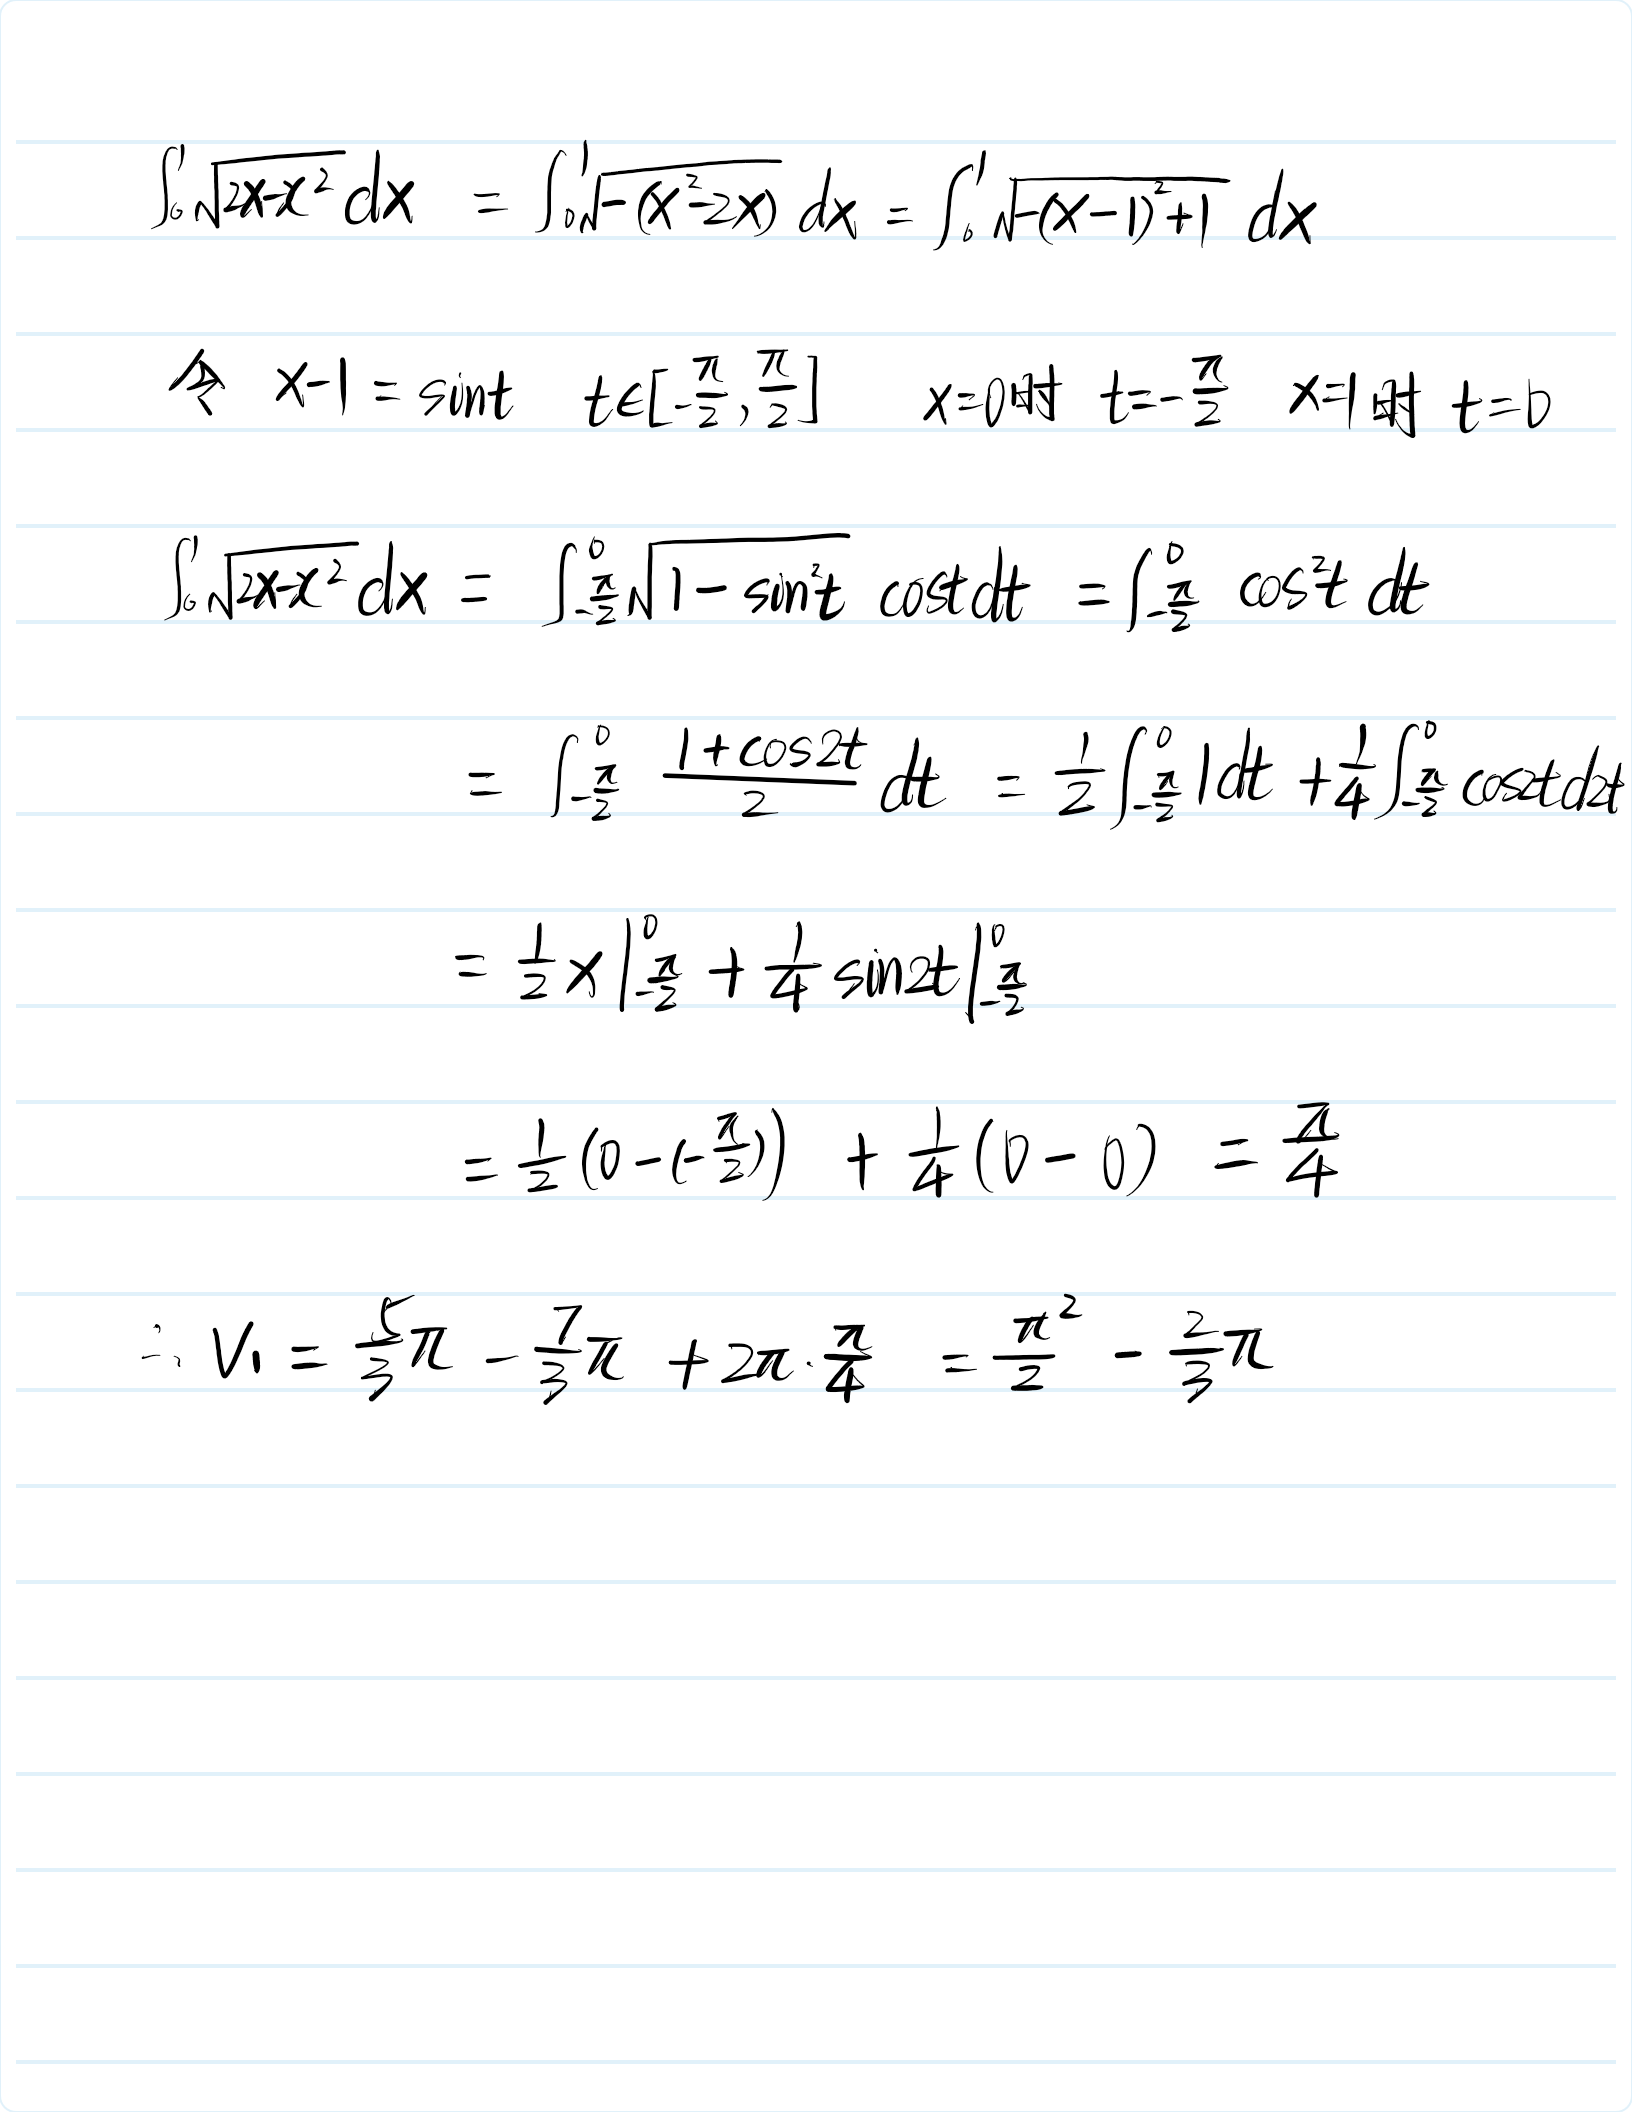 ∫₀¹ √(2x-x²) dx = ∫₀¹ √(-(x²-2x)) dx = ∫₀¹ √(-(x-1)²+1) dx
令 x-1 = sint t∈[-π/2, π/2] x=0时 t=-π/2 x=1时 t=0
∫₀¹ √(2x-x²) dx = ∫_{-π/2}^0 √(1-sin²t) cost dt = ∫_{-π/2}^0 cos²t dt
= ∫_{-π/2}^0 (1+cos2t)/2 dt = 1/2 ∫_{-π/2}^0 1dt + 1/4 ∫_{-π/2}^0 cos2t d2t
= 1/2 x |_{-π/2}^0 + 1/4 sin2t |_{-π/2}^0
= 1/2 (0-(-π/2)) + 1/4 (0-0) = π/4
∴ V₁ = 5/3 π - 7/3 π + 2π · π/4 = π²/2 - 2/3 π